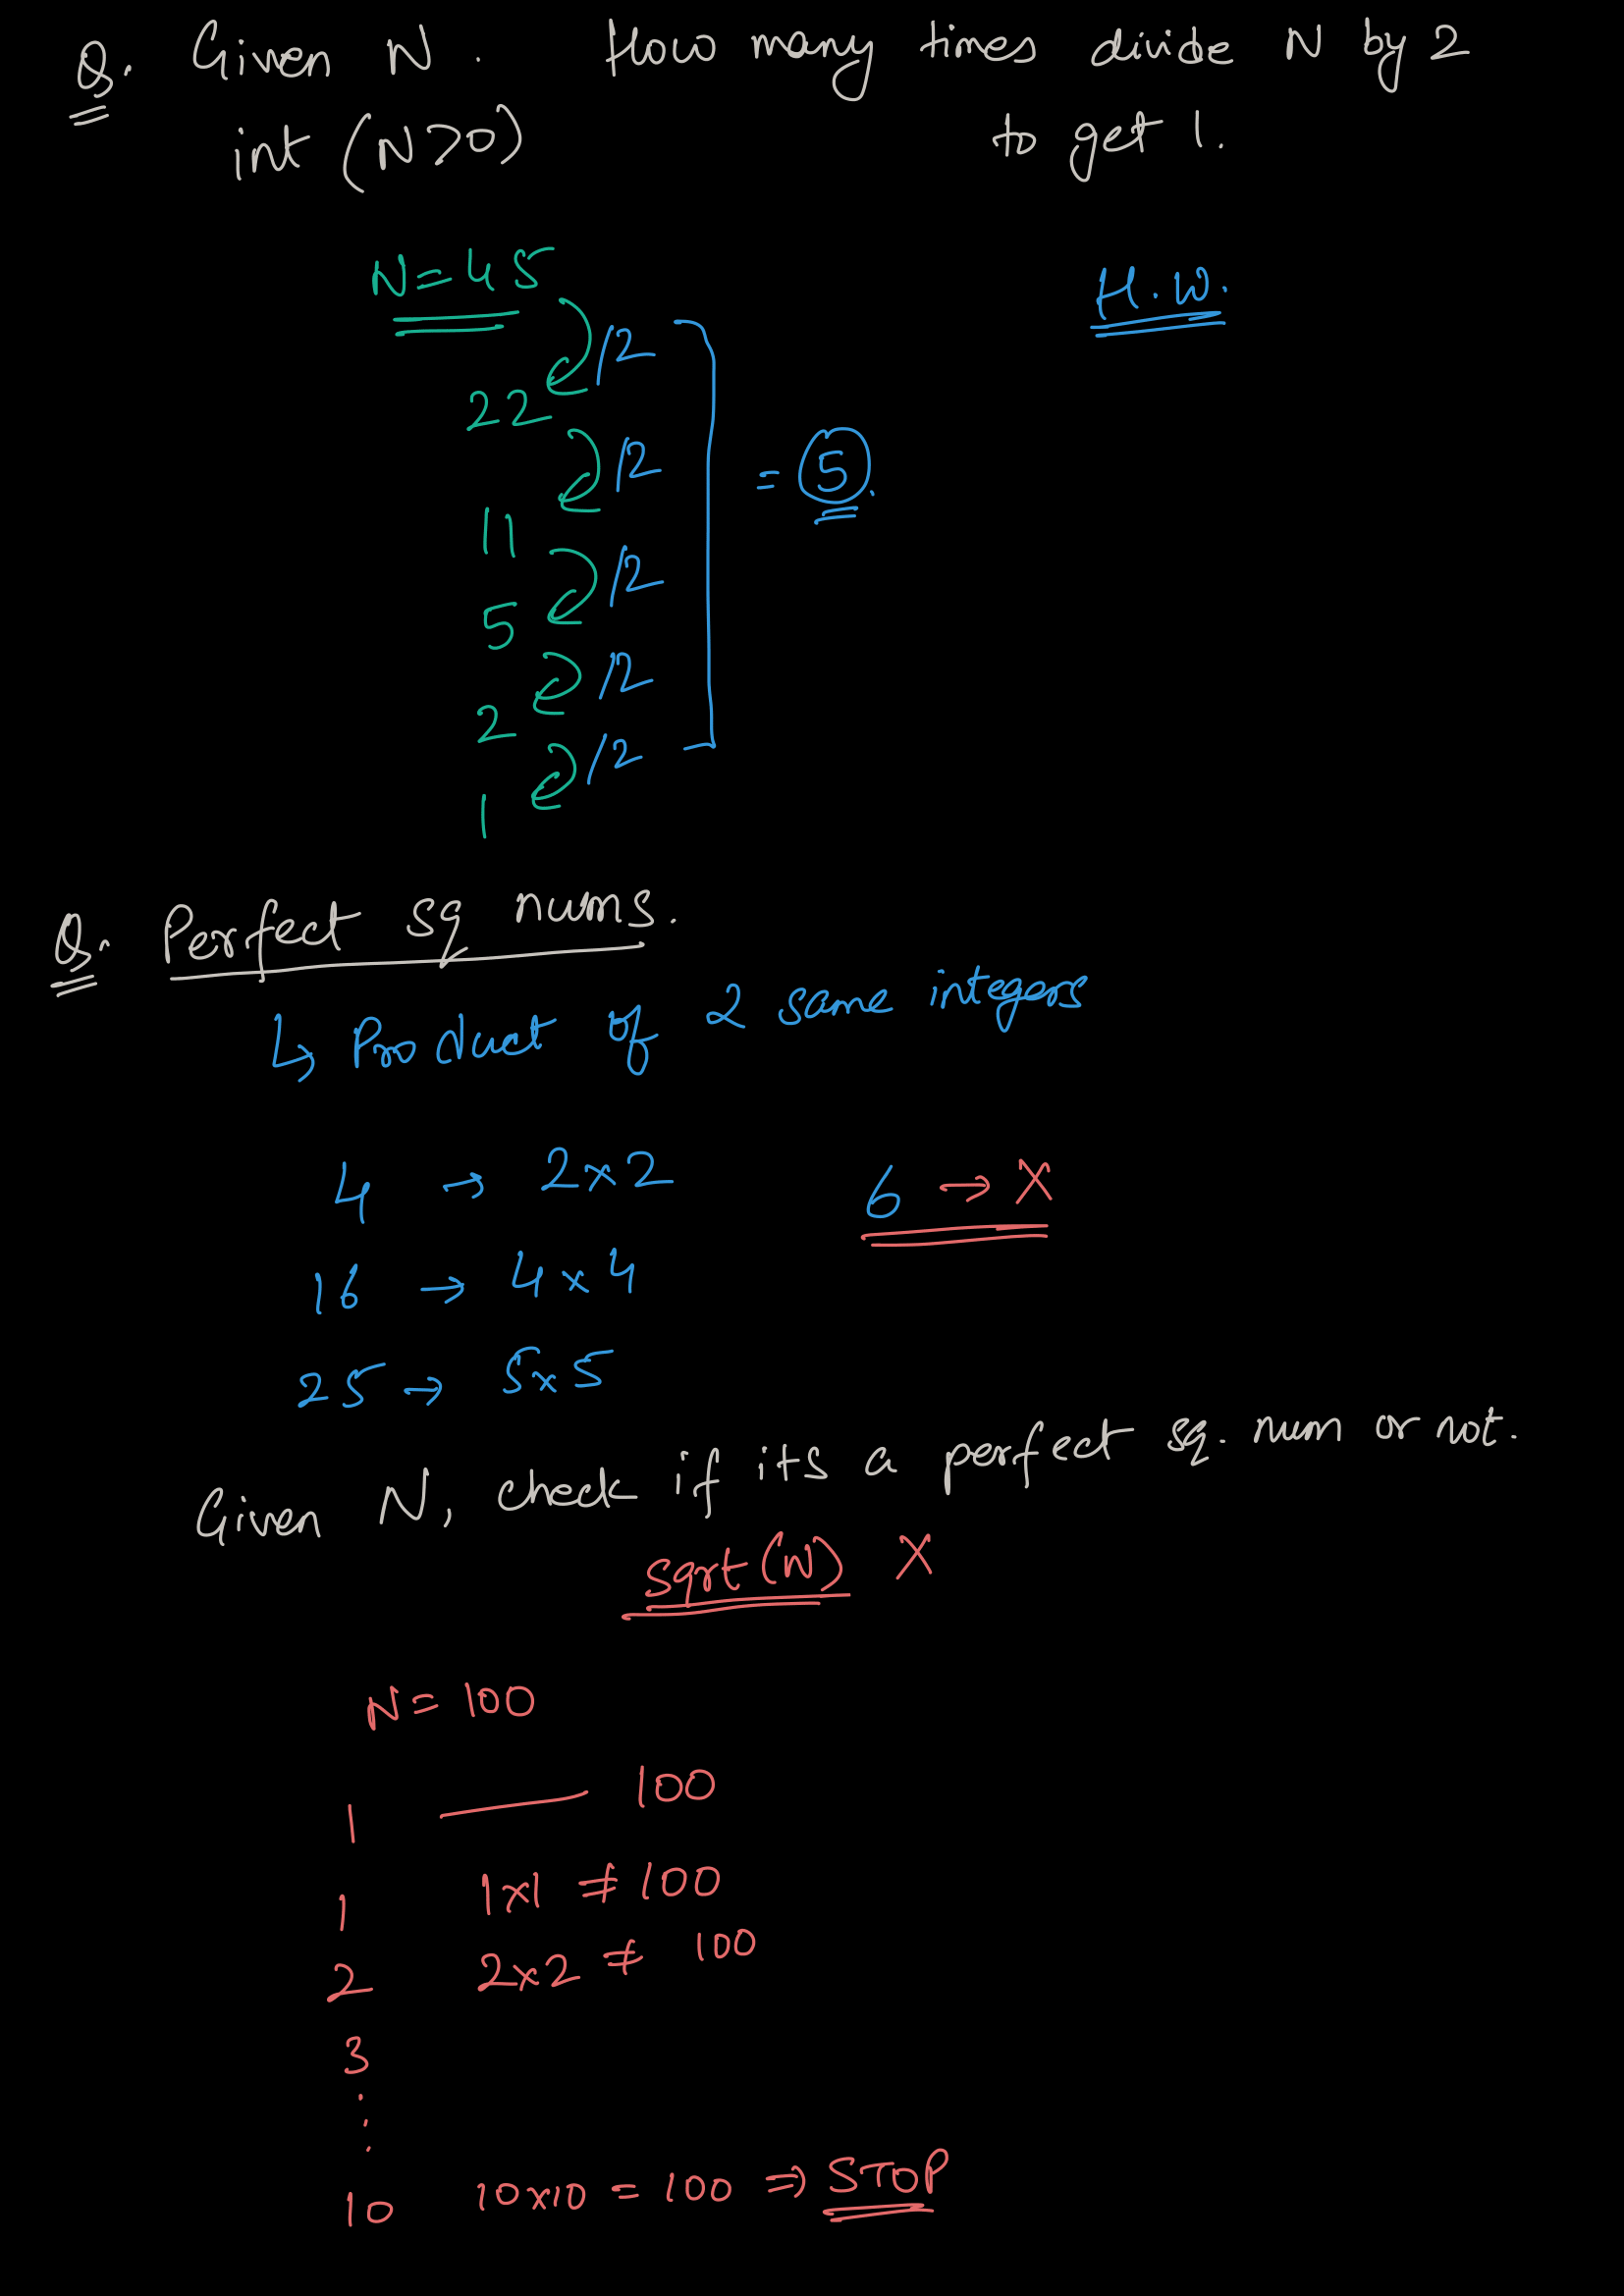 Q. Given N. How many times divide N by 2
int (N>0) to get 1.
N=45 H.W.
/2
22
/2
= 5.
11
/2
5
/2
2
/2
1
Q. Perfect sq nums.
↳ Product of 2 same integers
4 → 2×2 6 → X
16 → 4×4
25 → 5×5
Given N, check if its a perfect sq. num or not.
sqrt(N) X
N=100
1 — 100
1 1×1 ≠ 100
2 2×2 ≠ 100
3
⋮
10 10×10 = 100 ⇒ STOP